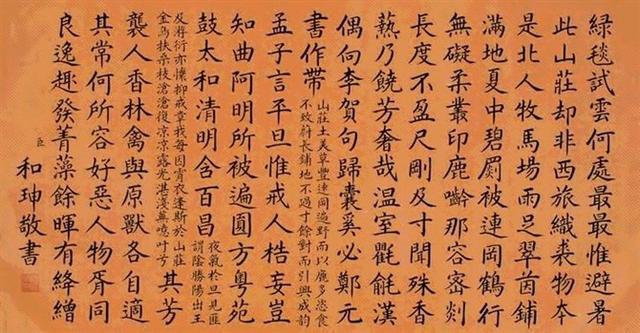 綠毯試雲何處最最惟避暑
此山莊却非西旅織裘物本
是北人牧馬場雨足翠茵鋪
滿地夏中碧罽被連岡鶴行
無礙柔叢印鹿齡那容密剡
長度不盈尺剛及寸聞殊香
爇乃饒芳奢哉溫室氍毹漢
偶向李賀句歸囊奚必鄭元
書作帶
山莊土美草豐遠同遍野而以鹿多恣食
不致蔚長鋪地不過寸餘對而引興成韵
孟子言平旦惟戒人梏妄豈
知曲阿明所被遍圓方粵苑
鼓太和清明含百昌
夜氣於旦見匪
謂陰勝陽出王
及游衍亦懷抑戒章我每因宵衣逢斯於山莊
金烏扶桑枝滄滄復凉凉露光湛淺蕪噫叶兮
其芳
襲人香林禽與原獸各自適
其常何所容好惡人物胥同
良逸趣發菁藻餘暉有絳繒
臣和珅敬書